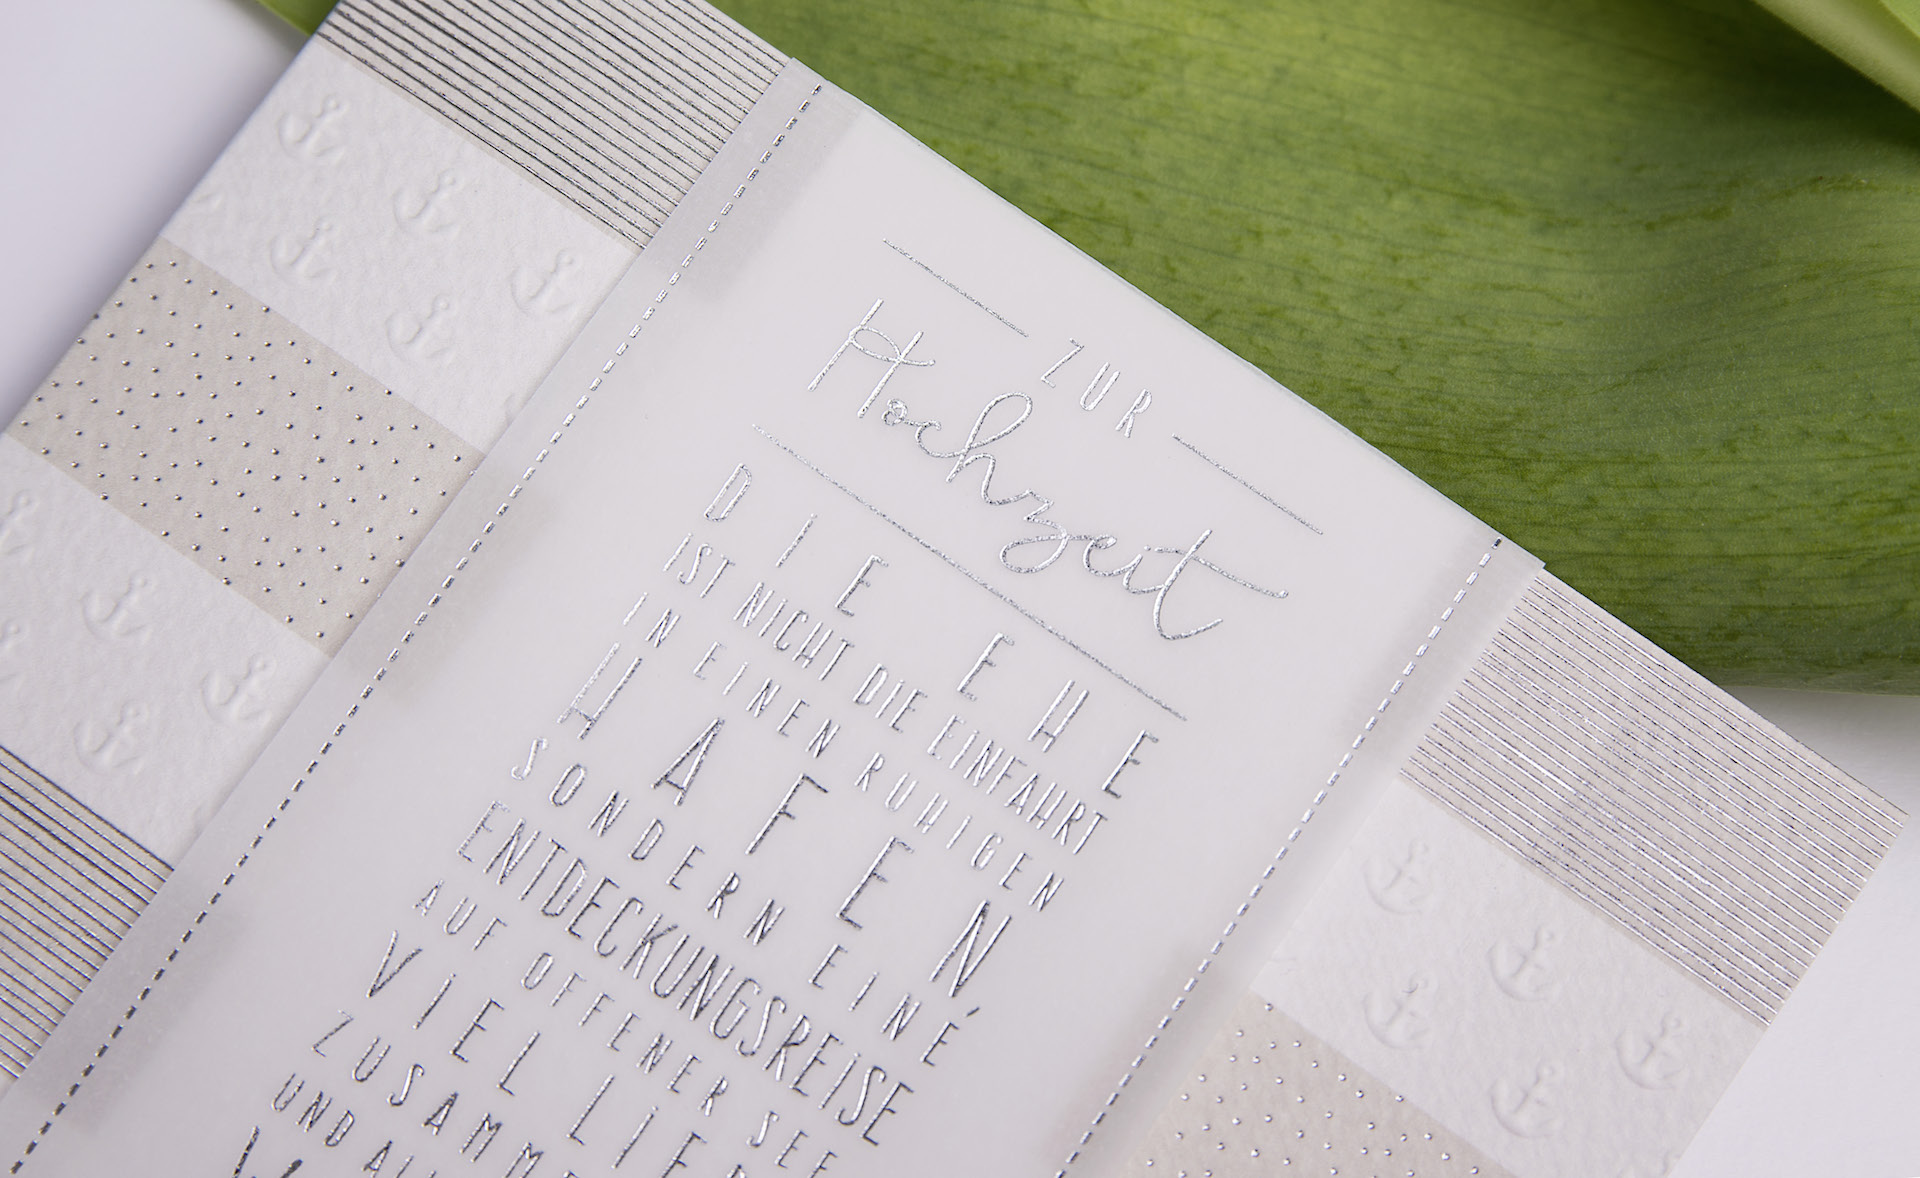 ZUR
Hochzeit
DIE EHE
IST NICHT DIE EINFAHRT
IN EINEN RUHIGEN
HAFEN,
SONDERN EINE
ENTDECKUNGSREISE
AUF OFFENER SEE
VIEL
ZUSAMM
UND